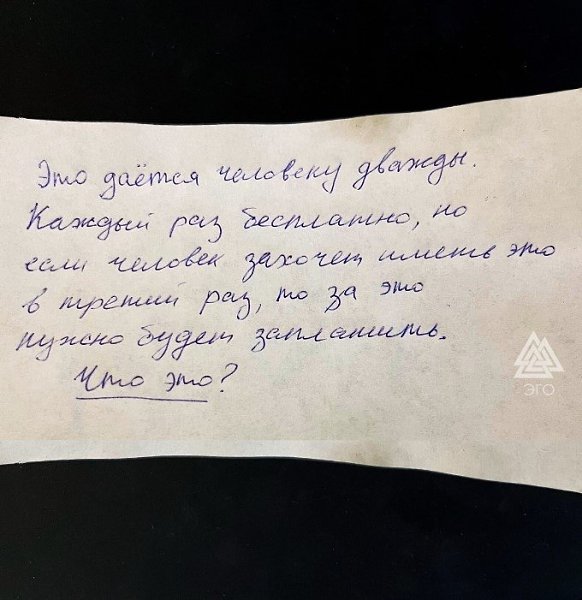 Это даётся человеку дважды.
Каждый раз бесплатно, но
если человек захочет иметь это
в третий раз, то за это
нужно будет заплатить.
Что это?
ЭГО